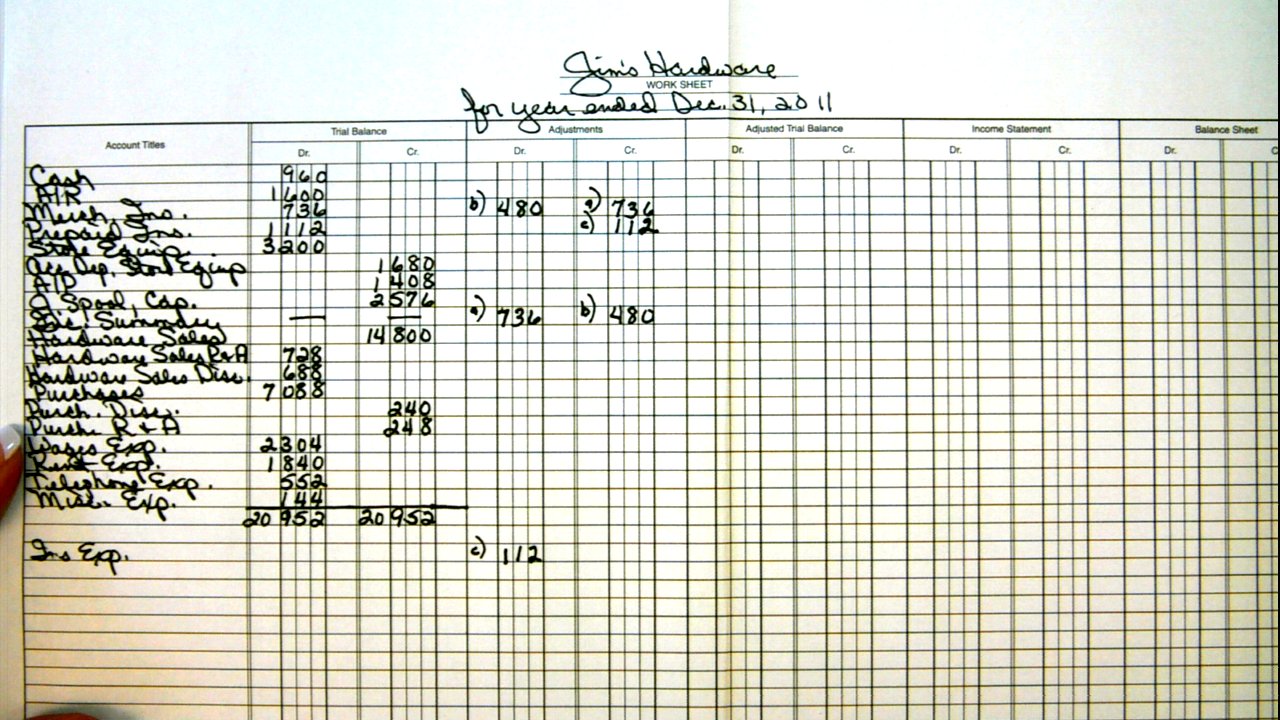 Jim's Hardware
WORK SHEET
for year ended Dec. 31, 2011
Account Titles Trial Balance Adjustments Adjusted Trial Balance Income Statement Balance Sheet
Dr. Cr. Dr. Cr. Dr. Cr. Dr. Cr. Dr. C
Cash 960
A/R 1600
Merch. Ins. 736 b) 480 a) 736
Prepaid Ins. 1112 c) 112
Store Equip. 3200
Acc Dep, Store Equip 1680
A/P 1408
J. Spool, Cap. 2576
Inc. Summary — — a) 736 b) 480
Hardware Sales 14800
Hardware Sales R+A 728
Hardware Sales Disc. 688
Purchases 7088
Purch. Disc. 240
Purch. R+A 248
Wages Exp. 2304
Rent Exp. 1840
Telephone Exp. 552
Misc. Exp. 144
20952 20952
Ins Exp. c) 112